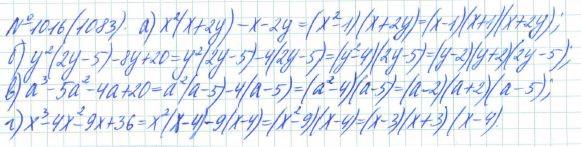 №1016(1083). а) x²(x+2y)-x-2y=(x²-1)(x+2y)=(x-1)(x+1)(x+2y);
б) y²(2y-5)-8y+20=y²(2y-5)-4(2y-5)=(y²-4)(2y-5)=(y-2)(y+2)(2y-5);
в) a³-5a²-4a+20=a²(a-5)-4(a-5)=(a²-4)(a-5)=(a-2)(a+2)(a-5);
г) x³-4x²-9x+36=x²(x-4)-9(x-4)=(x²-9)(x-4)=(x-3)(x+3)(x-4).